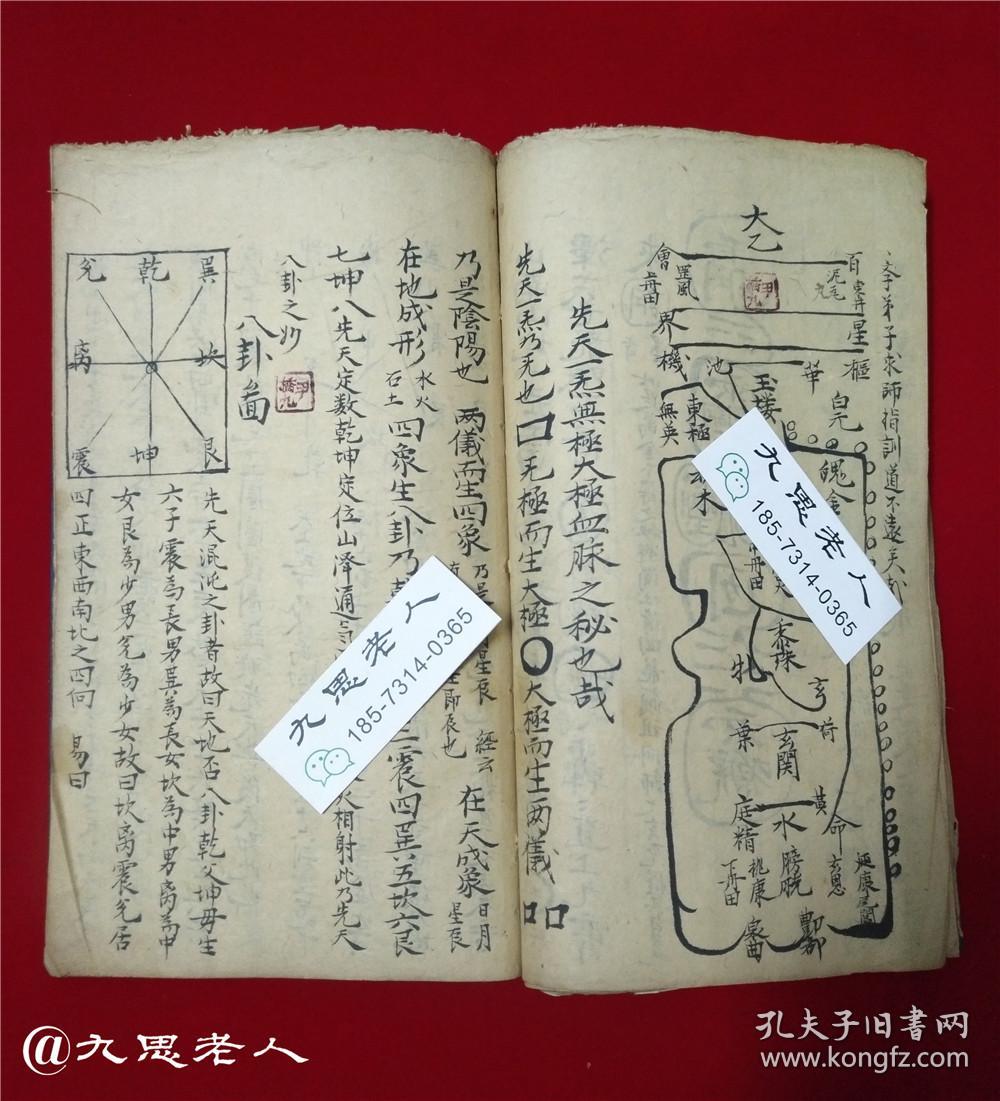 文子弟子求師指訓道不遠矣
大乙
百
會
泥丸
罡風
上丹田
星
界
樞
機
華
池
白元
玉樓
東極
無英
魄金
木
丹田
黍珠
牝
玄
荷
葉
玄関
黃
庭
水
命
精
膀胱
玄恩
桃康
下丹田
酆都
先天一炁無極大極血脉之秘也哉
先天一炁乃无也 无極而生大極 大極而生两儀
乃是陰陽也 两儀而生四象 乃是 星辰 經云 在天成象 日月星辰
在地成形 水火石土 四象生八卦乃 震四巽五坎六艮
七坤八先天定数乾坤定位山泽通 相射此乃先天
八卦之妙
八卦啚
兌 乾 巽
离 坎
震 坤 艮
先天混沌之卦者故曰天地否八卦乾父坤毋生
六子震為長男巽為長女坎為中男离為中
女艮為少男兌為少女故曰坎离震兌居
四正東西南北之四向 易曰
九思老人
185-7314-0365
九思老人
185-7314-0365
@九思老人
孔夫子旧书网
www.kongfz.com